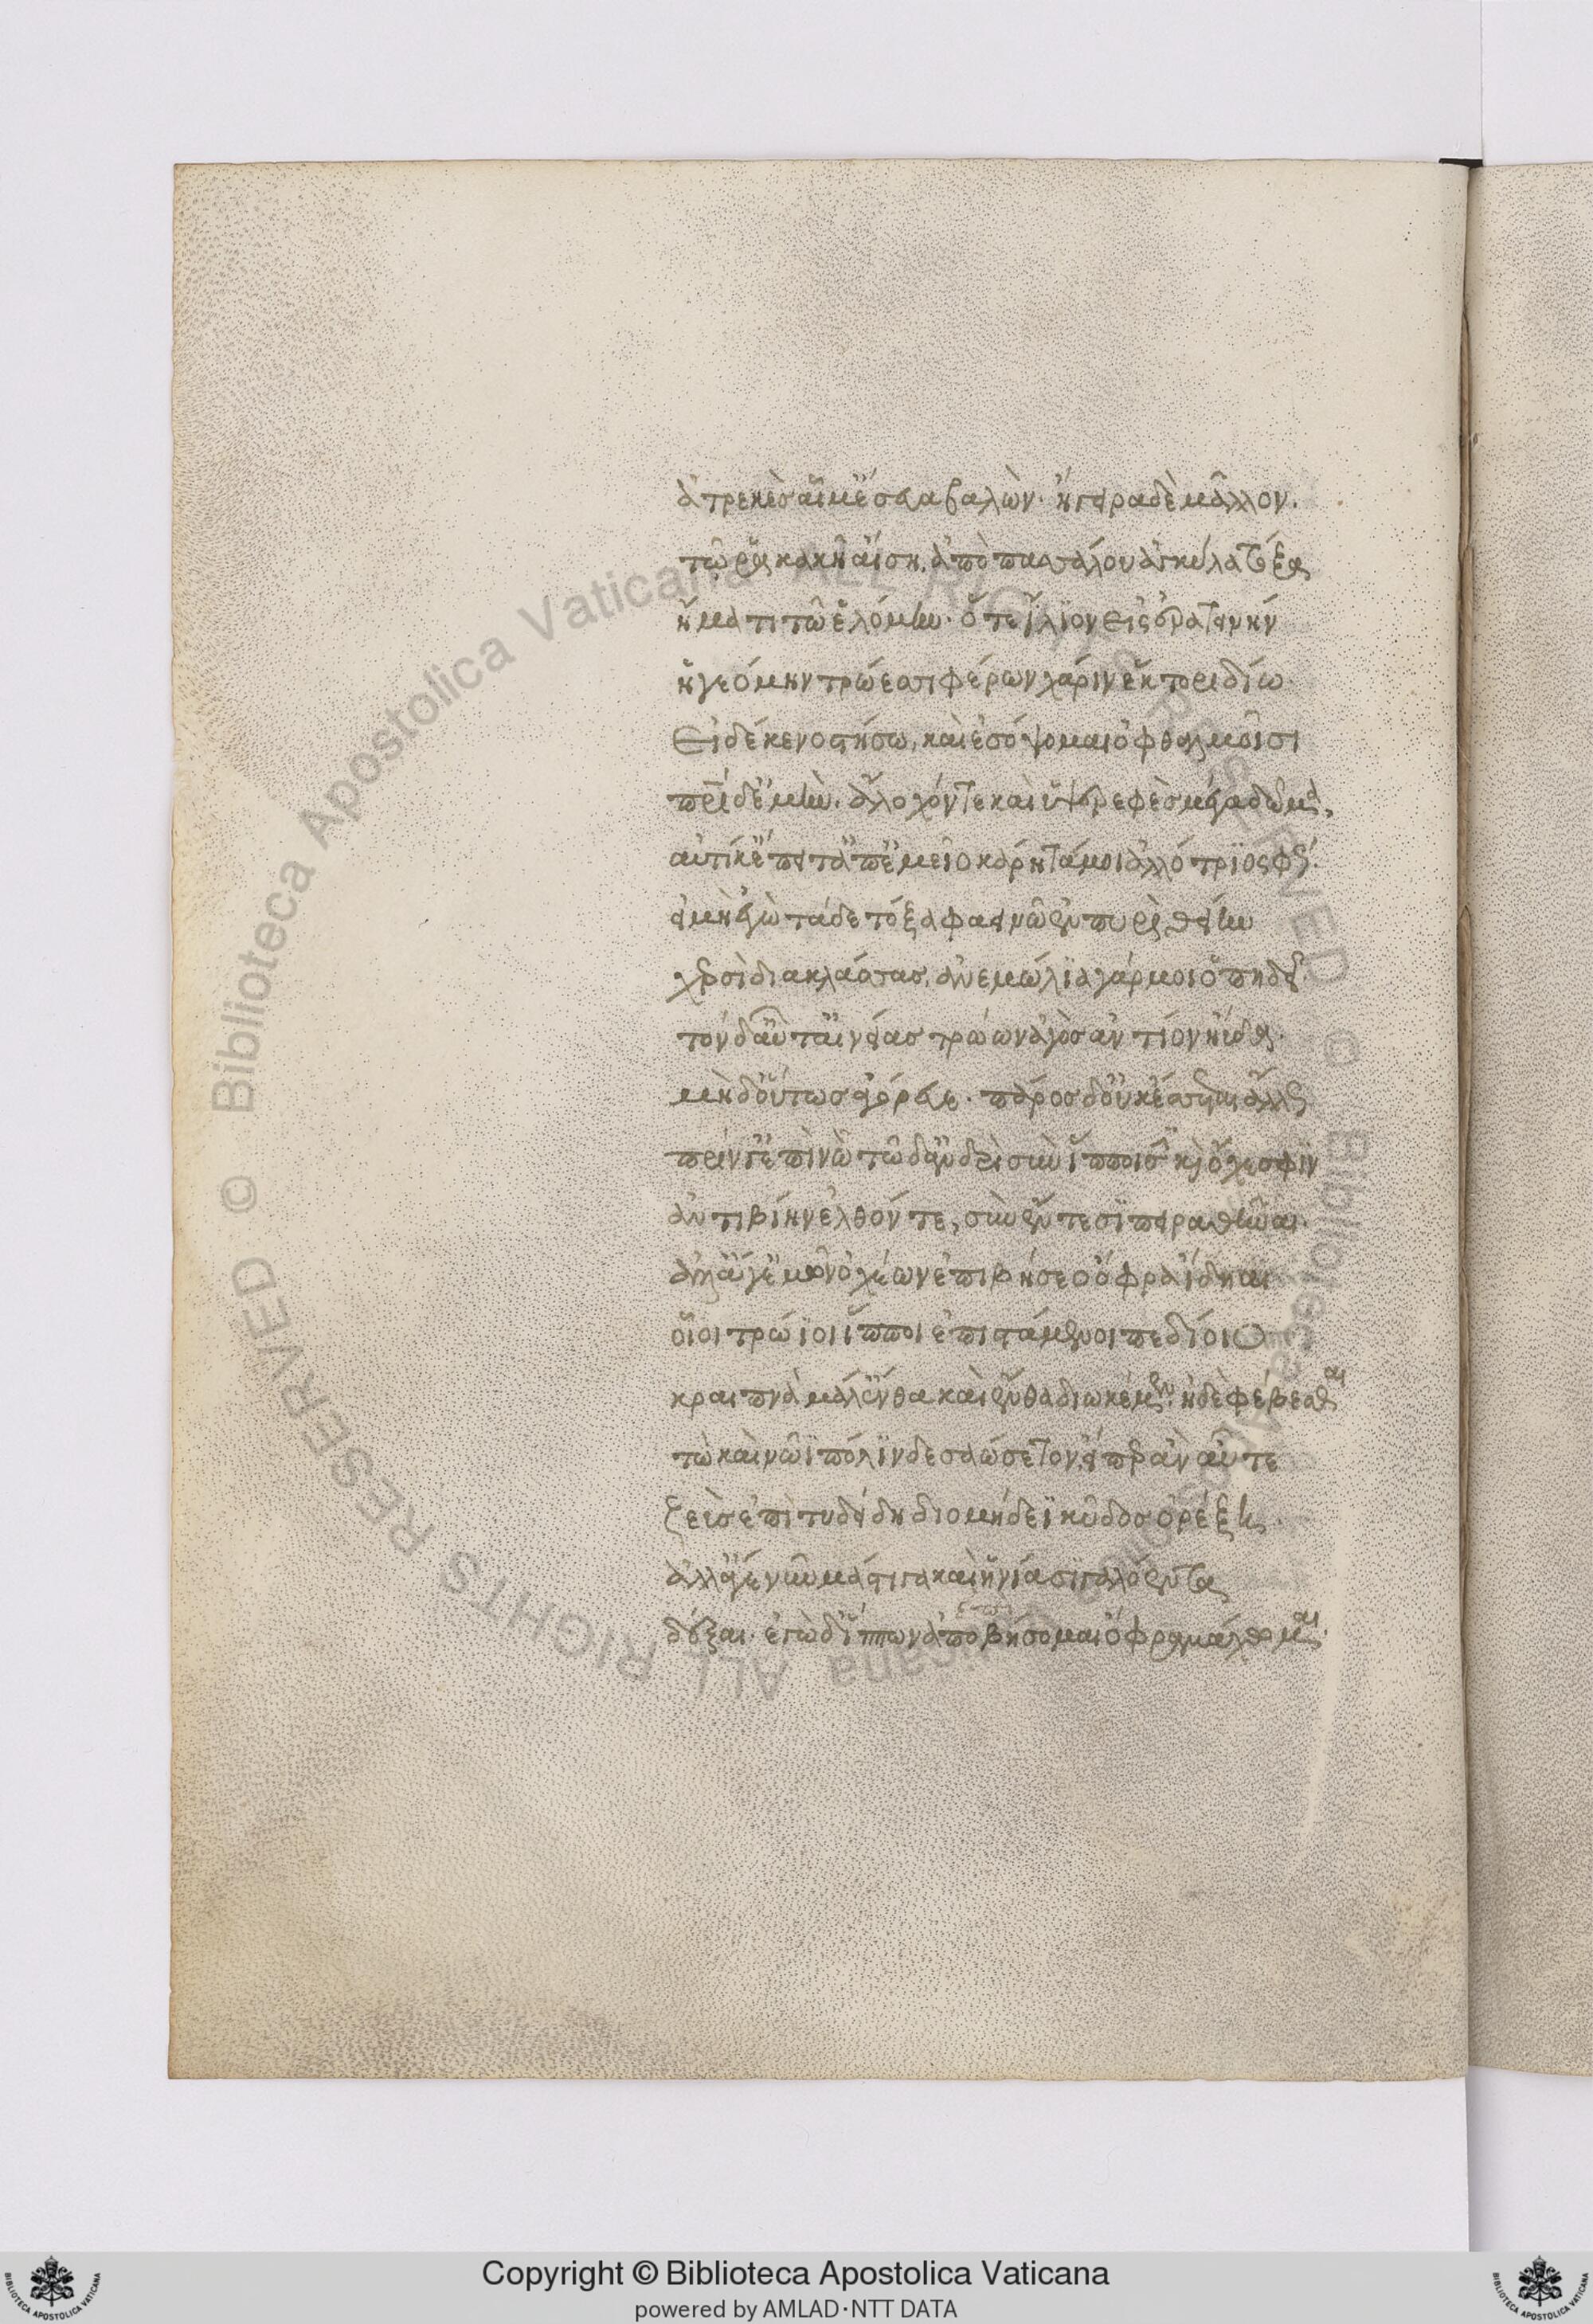 ἀτρεκὲς αἷμ' ἔσσευα βαλὼν· ἤγειρα δὲ μᾶλλον.
τῶ ῥα κακῆ αἴση, ἀπὸ πασσάλου ἀγκύλα τόξα
ἤματι τῶ ἑλόμην· ὅτε ἴλϊον εἰς ἐρατεινήν
ἡγεόμην τρώεσσι φέρων χάριν ἕκτορι δίω·
Εἰ δέ κε νοστήσω, καὶ ἐσόψομαι ὀφθαλμοῖσι
πατρίδ' ἐμὴν. ἄλοχόν τε καὶ ὑψερεφὲς μέγα δῶμα,
αὐτίκ' ἔπειτ' ἀπ' ἐμεῖο κάρη τάμοι ἀλλότριος φώς·
εἰ μὴ ἐγὼ τάδε τόξα φαεινῶ ἐν πυρὶ θείην
χερσὶ διακλάσσας, ἀνεμώλϊα γάρ μοι ὀπηδεῖ·
τόν δ' αὖτ' αἰνείας τρώων ἀγὸς ἀντίον ηὔδα·
μὴ δ' οὕτως ἀγόρευε· πάρος δ' οὐκ ἔσσεται ἄλλως
πρίν γ' ἐπὶ νὼ τῶ δ' ἀνδρὶ σὺν ἵπποισι καὶ ὄχεσφιν
ἀντιβίην ἐλθόντε, σὺν ἔντεσϊ πειραθῆναι·
ἀλλ' ἄγ' ἐμῶν ὀχέων ἐπιβήσεο ὄφρα ἴδηαι
οἷοι τρώϊοι ἵπποι ἐπιστάμενοι πεδίοιο
κραιπνὰ μάλ' ἔνθα καὶ ἔνθα διωκέμεν. ἠδὲ φέβεσθαι
τὼ καὶ νῶϊ πόλϊνδε σαώσετον, εἴπερ ἂν αὖτε
ζεὺς ἐπὶ τυδείδη διομήδεϊ κῦδος ὀρέξη·
ἀλλ' ἄγε νῦν μάστιγα καὶ ἡνία σιγαλόεντα
δέξαι· ἐγὼ δ' ἵππων ἀποβήσομαι ὄφρα μάχωμαι·